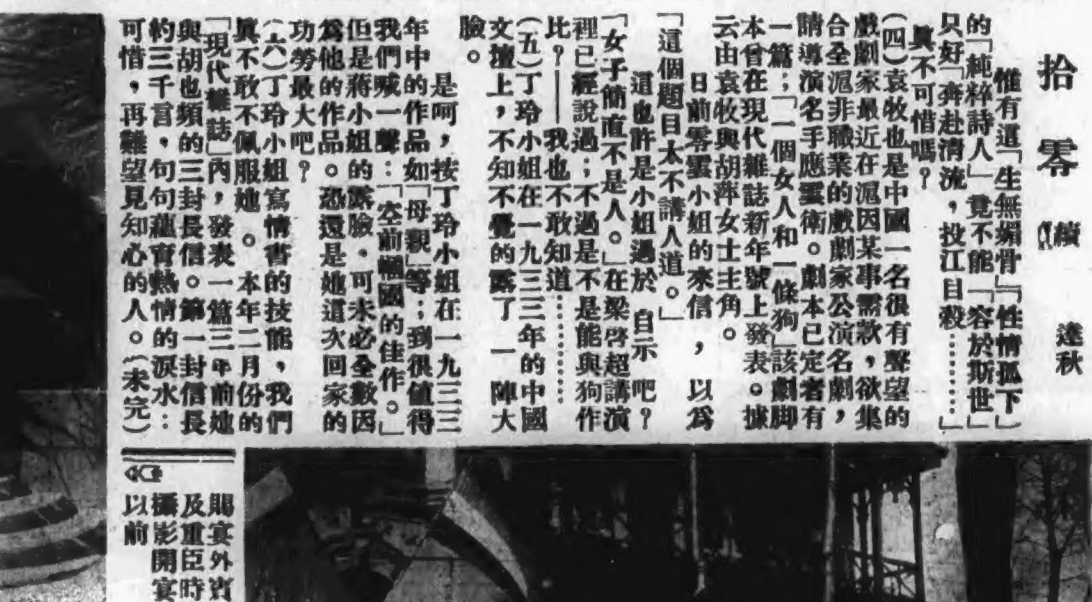 拾零 (續 達秋
惟有這「生無媚骨」「性情孤下」
的「純粹詩人」竟不能「容於斯世」
只好「奔赴清流，投江自殺………」
眞不可惜嗎？
(四)袁牧也是中國一名很有聲望的
戲劇家最近在滬因某事需款，欲集
合全滬非職業的戲劇家公演名劇，
請導演名手應雲衛。劇本已定者有
一篇；「一個女人和一條狗」該劇脚
本曾在現代雜誌新年號上發表。據
云由袁牧與胡萍女士主角。
日前零雲小姐的來信，以爲
「這個題目太不講人道。」
這也許是小姐過於 自示 吧？
「女子簡直不是人。」在梁啓超講演
裡已經說過；不過是不是能與狗作
比？——我也不敢知道………
(五)丁玲小姐在一九三三年的中國
文壇上，不知不覺的露了一陣大
臉。
是呵，按丁玲小姐在一九三三
年中的作品如「母親」等；到很値得
我們喊一聲：「空前幗國的佳作。」
但是蔣小姐的露臉。可未必全數因
爲他的作品。恐還是她這次回家的
功勞最大吧？
(六)丁玲小姐寫情書的技能，我們
眞不敢不佩服她。本年二月份的
「現代雜誌」內，發表一篇三年前她
與胡也頻的三封長信。第一封信長
約三千言，句句蘊育熱情的淚水：
可惜，再難望見知心的人。(未完)
賜宴外賓
及重臣時
攝影開宴
以前